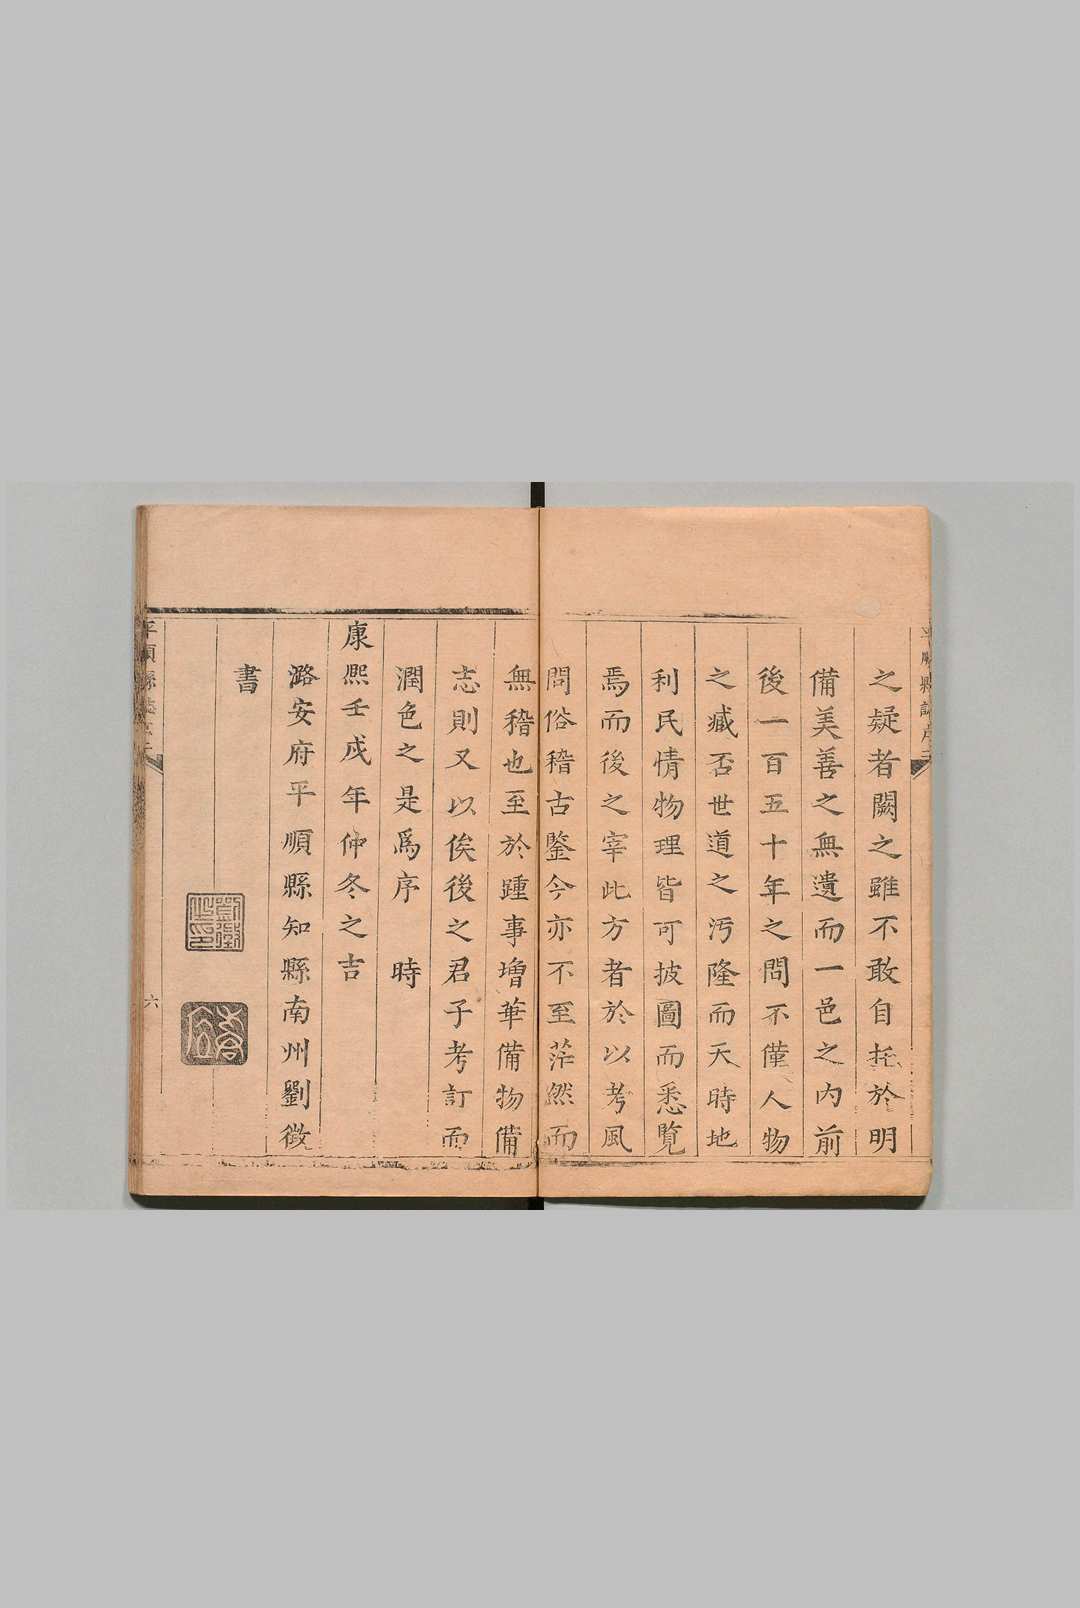 之疑者闕之雖不敢自托於明
備美善之無遺而一邑之內前
後一百五十年之間不僅人物
之臧否世道之汚隆而天時地
利民情物理皆可披圖而悉覽
焉而後之宰此方者於以考風
問俗稽古鑒今亦不至茫然而
無稽也至於踵事增華備物備
志則又以俟後之君子考訂而
潤色之是爲序　時
康熙壬戌年仲冬之吉
潞安府平順縣知縣南州劉徵
書
劉徵之印
六